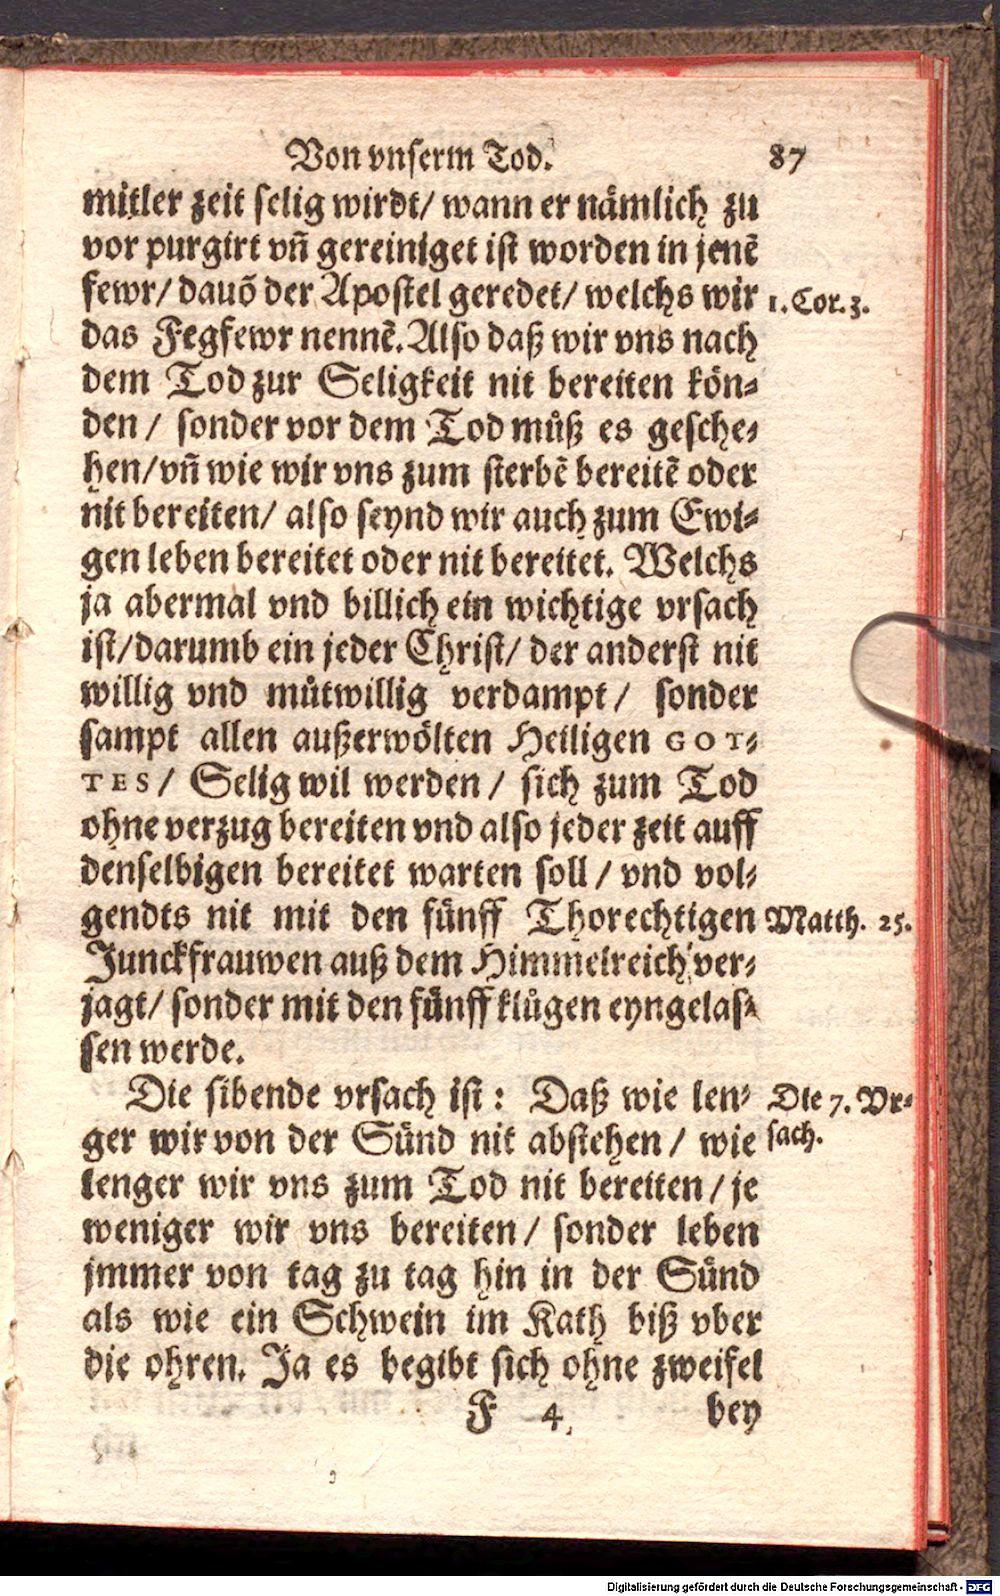 Von vnserm Tod. 87
mitler zeit selig wirdt/ wann er nämlich zu
vor purgirt vñ gereiniget ist worden in jenẽ
fewr/ dauõ der Apostel geredet/ welchs wir 1. Cor. 3.
das Fegfewr nennẽ. Also daß wir vns nach
dem Tod zur Seligkeit nit bereiten kön⸗
den / sonder vor dem Tod můß es gesche⸗
hen/ vñ wie wir vns zum sterbẽ bereitẽ oder
nit bereiten/ also seynd wir auch zum Ewi⸗
gen leben bereitet oder nit bereitet. Welchs
ja abermal vnd billich ein wichtige vrsach
ist/ darumb ein jeder Christ/ der anderst nit
willig vnd můtwillig verdampt / sonder
sampt allen außerwölten Heiligen GOT⸗
TES/ Selig wil werden / sich zum Tod
ohne verzug bereiten vnd also jeder zeit auff
denselbigen bereitet warten soll / vnd vol⸗
gendts nit mit den fünff Thorechtigen Matth. 25.
Junckfrauwen auß dem Himmelreich ver⸗
jagt/ sonder mit den fünff klůgen eyngelas⸗
sen werde.
Die sibende vrsach ist : Daß wie len⸗ Die 7. Vr⸗
ger wir von der Sünd nit abstehen / wie sach.
lenger wir vns zum Tod nit bereiten / je
weniger wir vns bereiten / sonder leben
jmmer von tag zu tag hin in der Sünd
als wie ein Schwein im Kath biß vber
die ohren. Ja es begibt sich ohne zweifel
F 4 bey
Digitalisierung gefördert durch die Deutsche Forschungsgemeinschaft - DFG